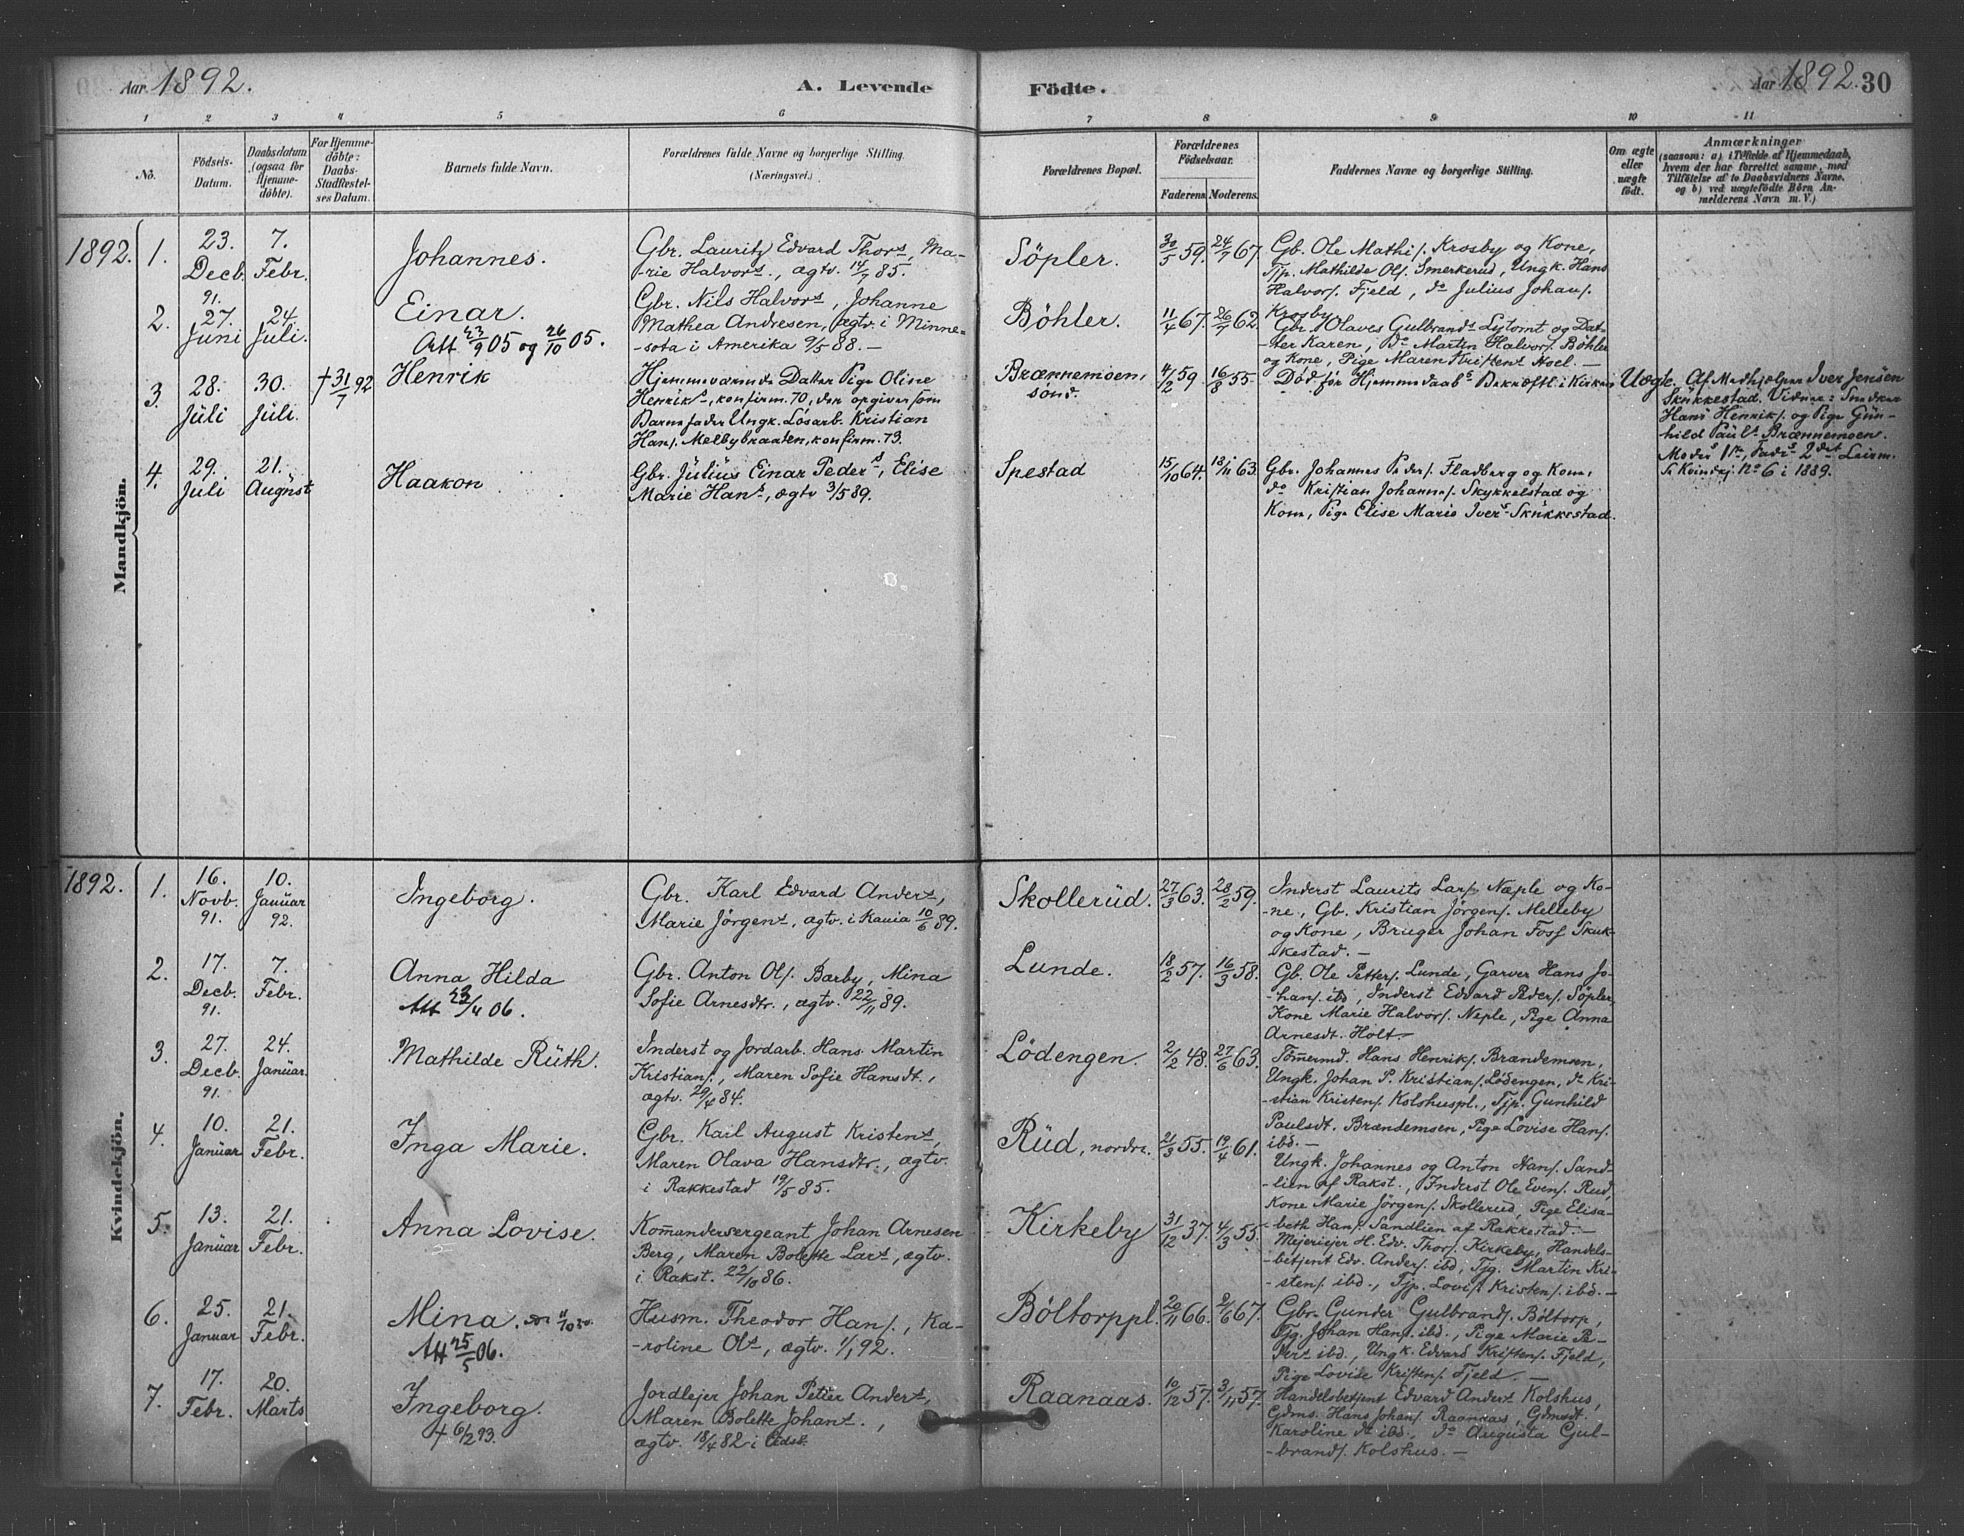 Aar 1892.
A. Levende
Födte.
Aar 1892. 30
1 2 3 4 5 6 7 8 9 10 11
No.
Födsels-
Datum.
Daabsdatum
(ogsaa for
Hjemme-
döbte).
For Hjemme-
döbte:
Daabs-
Stadfæstel-
ses Datum.
Barnets fulde Navn.
Forældrenes fulde Navne og borgerlige Stilling.
(Næringsvei.)
Forældrenes Bopæl.
Forældrenes
Födselsaar.
Faderens. Moderens.
Faddernes Navne og borgerlige Stilling.
Om ægte
eller
uægte
födt.
Anmærkninger
(saasom: a) i Tilfælde af Hjemmedaab,
hvem der har forrettet samme, med
Tilföielse af to Daabsvidners Navne,
og b) ved uægtefödte Börn An-
melderens Navn m. V.)
Mandkjön.
1892. 1.
23.
Decb.
91.
7.
Febr.
Johannes.
Gbr. Lauritz Edvard Thors, Ma-
rie Halvors., ægtv. 14/7 85.
Söpler.
30/5 59. 24/7 67.
Gb. Ole Mathis. Krosby og Kone,
Tjp. Mathilde Ols. Smerkerud, Ungk. Hans
Halvors. Fjeld, do Julius Johans.
Krosby
2.
27.
Juni
24.
Juli.
Einar.
Att 23/9 05 og 26/10 05.
Gbr. Nils Halvors, Johanne
Mathea Andresen, ægtv. i Minne-
sota i Amerika 9/5 88. —
Böhler.
11/4 67. 26/7 62.
Gbr. Olaves Gulbrands Lytomt og Dat-
ter Karen, do Martin Halvors. Böhler
og Kone, Pige Maren Kristens Hoel. —
3.
28.
Juli
30.
Juli.
† 31/7 92
Henrik
Hjemmeværende Datter Pige Oline
Henriks, konfirm. 70, der opgiver som
Barnefader Ungk. Løsarb. Kristian
Hans. Melbybraaten, konfirm. 73.
Brænnemoen,
sönd.
4/2 59 16/8 55.
Död før Hjemmedaabs Bekræft. i Kirken
Uægte.
Af Medhjælper Iver Jensen
Skükkestad. Vidner: Snedker
Hans Henriks. og Pige Gün-
hild Pauls Brænnemoen.
Moders 1ste, Faders 2det Leierm.
Se Kvindekj. No 6 i 1889.
4.
29.
Juli
21.
August
Haakon
Gbr. Julius Einar Peders, Elise
Marie Hans, ægtv 3/5 89.
Spestad
15/10 64. 18/11 63.
Gbr. Johannes Peders. Fladberg og Kone,
do Kristian Johannes. Skykkelstad og
Kone, Pige Elise Marie Ivers Skükkestad.
Kvindekjön.
1892. 1.
16.
Novb.
91.
10.
Januar
92.
Ingeborg.
Gbr. Karl Edvard Anders,
Marie Jörgens, ægtv. i Rauia 10/6 89.
Skollerüd.
27/3 63. 28/2 59.
Inderst Laurits Lars. Næple og Ko-
ne, Gb. Kristian Jörgens. Melleby
og Kone, Bruger Johan Foss Skuk-
kestad. —
2.
17.
Decb.
91.
7.
Febr.
Anna Hilda
Att 23/4 06.
Gbr. Anton Ols. Barby, Mina
Sofie Arnesdtr., ægtv. 22/11 89.
Lunde.
18/2 57. 16/3 58.
Gb. Ole Petters. Lunde, Garver Hans Jo-
hans. ibd., Inderst Edvard Peders. Söpler,
Kone Marie Halvors. Neple, Pige Anna
Arnesdt. Holt. —
3.
27.
Decb.
91.
24.
Januar.
Mathilde Rüth.
Inderst og Jordarb. Hans Martin
Kristians., Maren Sofie Hansdt.,
ægtv. 29/6 84.
Lödengen.
2/2 48. 27/6 63.
Tömermd. Hans Henriks. Brændemoen,
Ungk. Johan P. Kristians. Lödengen, do Kri-
stian Kristens. Kolshuspl., Tjp. Gunhild
Paulsdt. Brændemoen, Pige Lovise Hans.
ibd. —
4.
10.
Januar
21.
Febr.
Inga Marie.
Gbr. Karl August Kristens,
Maren Olava Hansdtr., ægtv.
i Rakkestad 19/5 85.
Rüd, nordre.
21/3 55. 19/4 61.
Ungk. Johannes og Anton Hans. Sand-
lien af Rakst., Inderst Ole Evens. Rud,
Kone Marie Jörgens. Skollerud, Pige Elisa-
beth Hans. Sandlien af Rakkestad. —
5.
13.
Januar
21.
Febr.
Anna Lovise.
Kommandersergeant Johan Arnesen
Berg, Maren Bolette Lars, ægtv.
i Rakst. 22/10 86.
Kirkeby
31/12 37. 4/3 55.
Mejeriejer H. Edv. Thors. Kirkeby, Handels-
betjent Edv. Anders. ibd., Tjg. Martin Kri-
stens. ibd., Tjp. Lovis. Kristens. ibd. —
6.
25.
Januar
21.
Febr.
Mina.
Att 25/5 06.
Husm. Theodor Hans., Ka-
roline Ols, ægtv. 1/1 92.
Böltorppl.
20/11 66. 2/6 67.
Gbr. Gunder Gulbrands. Böltorp,
Tjg. Johan Hans. ibd., Pige Marie Pe-
ders ibd., Ungk. Edvard Kristens. Fjeld,
Pige Lovise Kristens. Fjeld. —
7.
17.
Febr.
20.
Marts
Ingeborg.
† 6/2 93.
Jordlejer Johan Petter Anders,
Maren Bolette Johans.,
ægtv. 18/4 82 i Eidsb.
Raanaas.
10/12 57. 3/11 57.
Handelsbetjent Edvard Anders Kolshus,
Gdms. Hans Johans. Raanaas, Gdmsdt.
Karoline dt ibd., do Augusta Gul-
brands. Kolshus. —